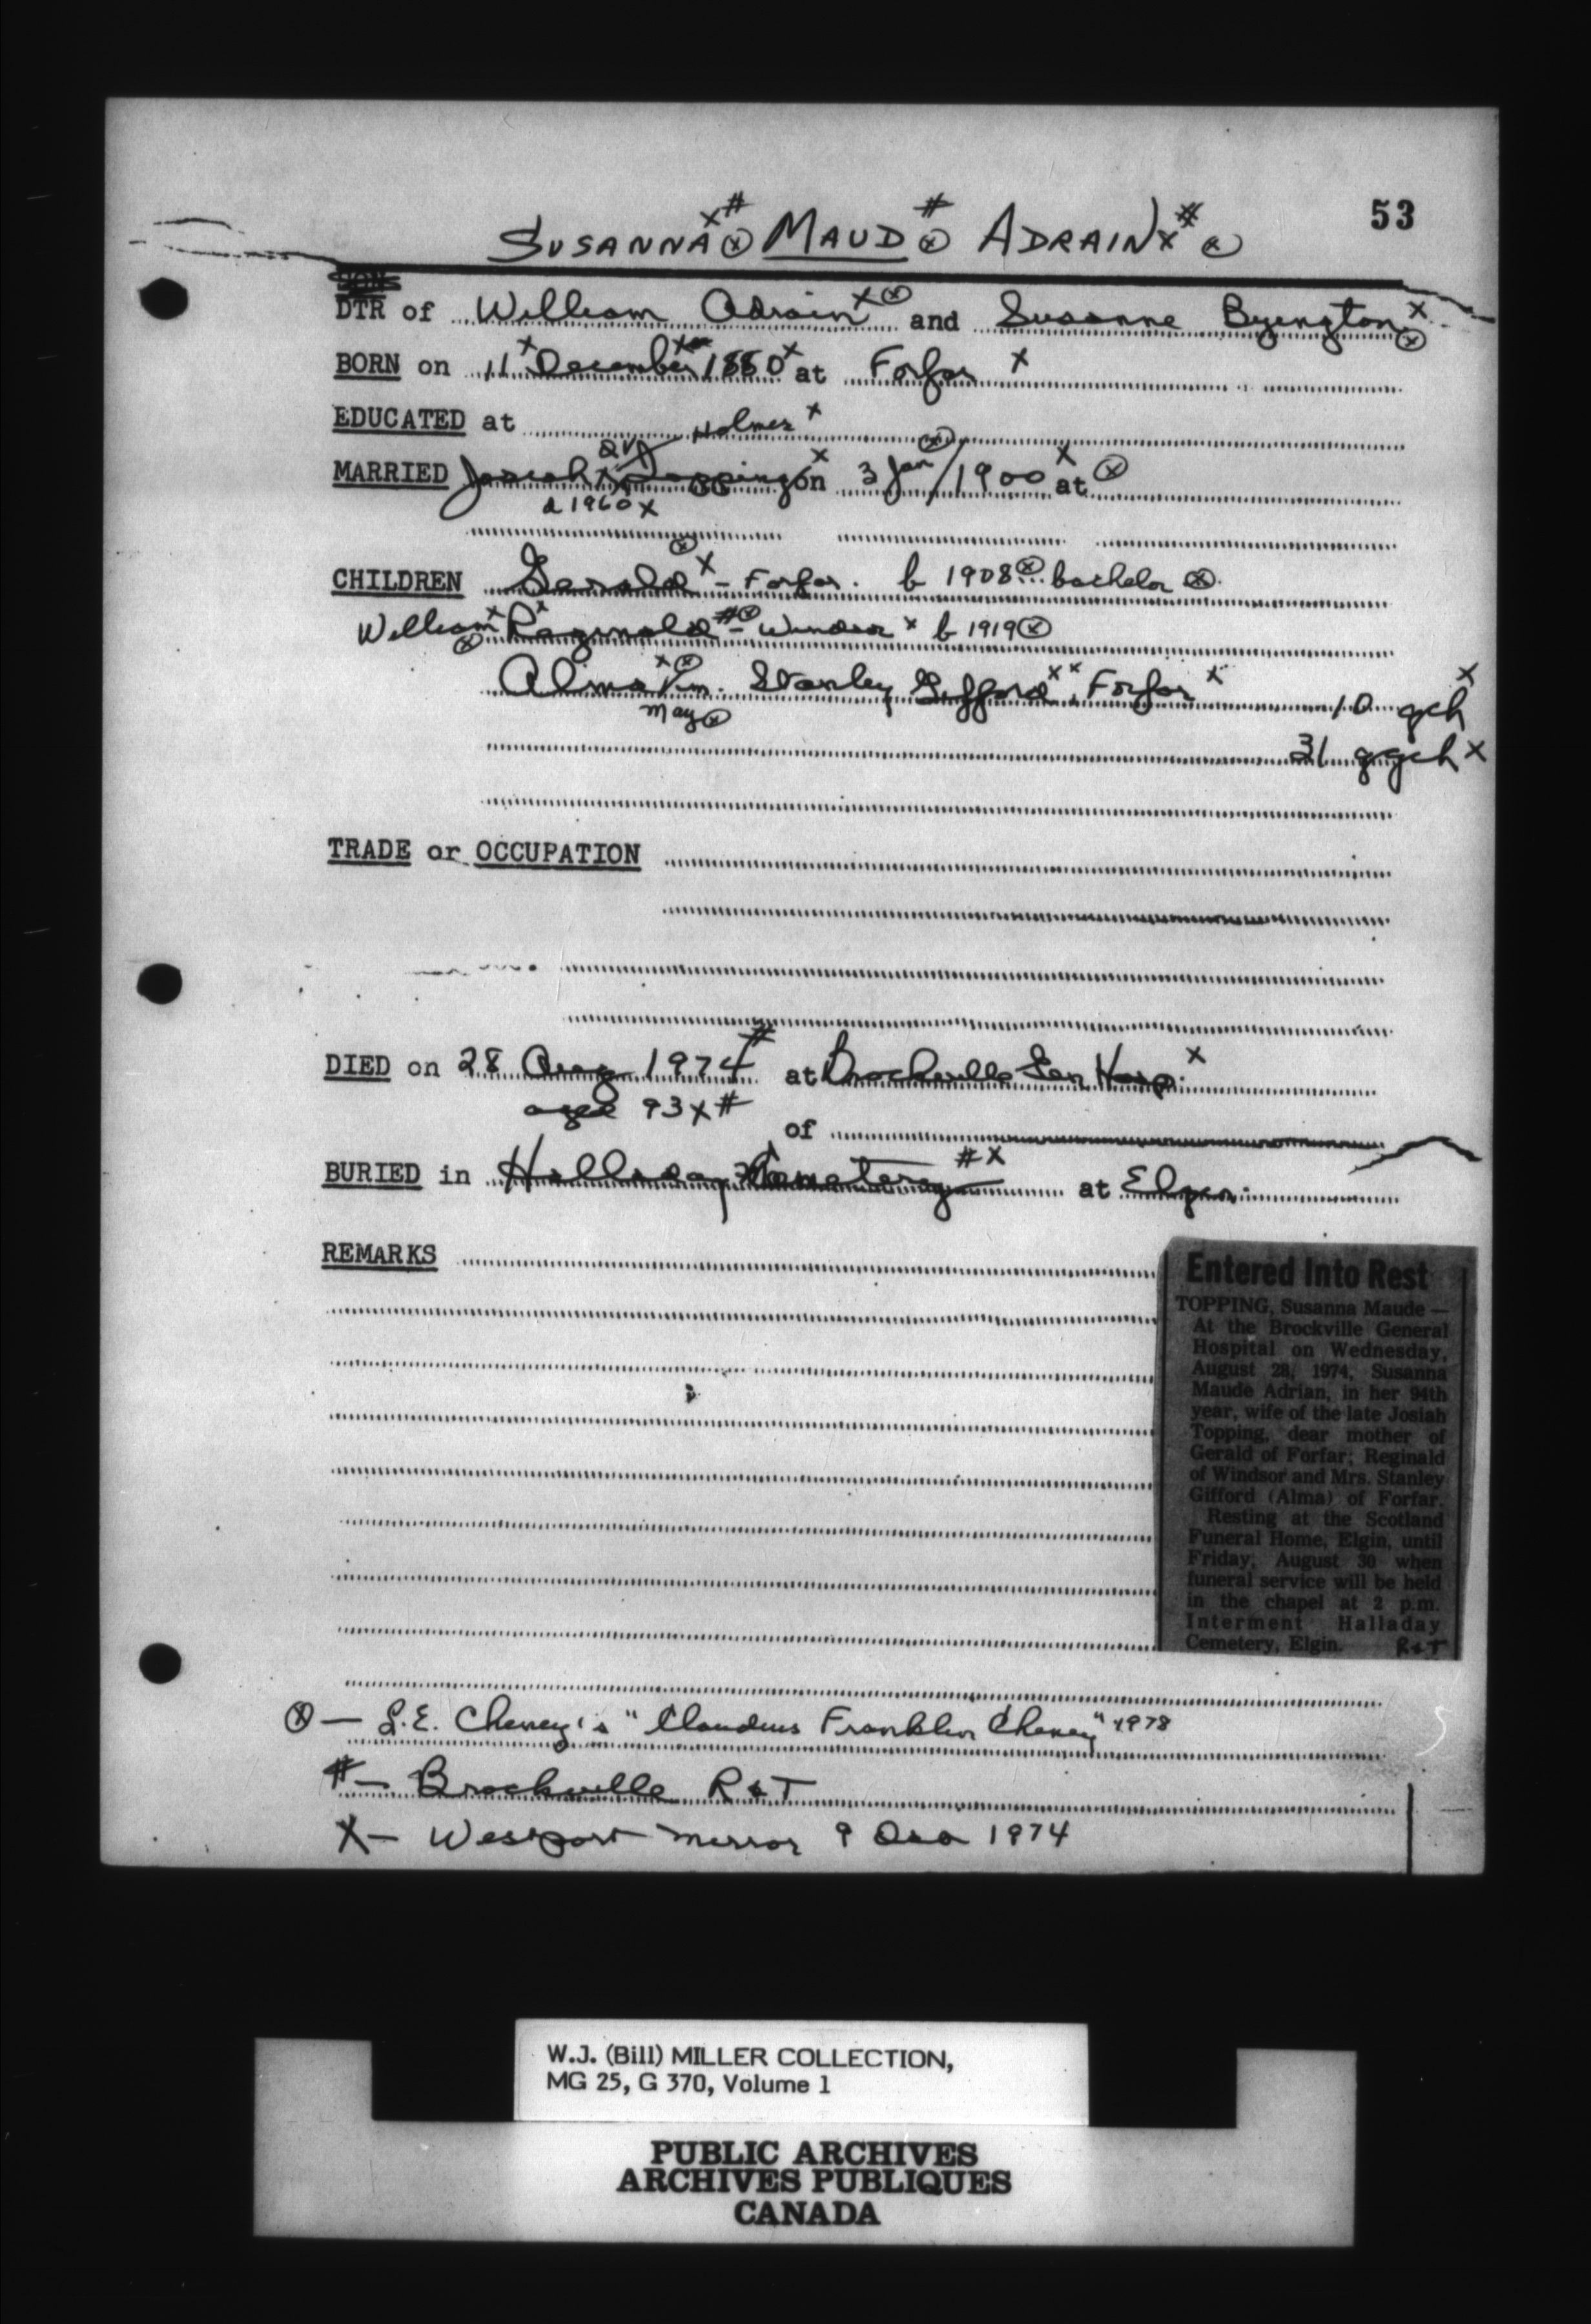 53
SUSANNA x# ⓧ MAUD # ⓧ ADRAIN x# ⓧ
DTR of William Adrain x ⓧ and Susanne Byington x ⓧ
BORN on 11 x December x 1880 x at Forfar x
EDUCATED at Holmes x
MARRIED Josiah Topping x on 3 Jan ⓧ/1900 x at ⓧ
d 1960 x
CHILDREN Gerald ⓧ x - Forfar. b 1908 ⓧ bachelor ⓧ.
William x ⓧ Reginald x # ⓧ - Windsor x b 1919 ⓧ
Alma x ⓧ m. Stanley Gifford x x, Forfar x 10 gch x
May ⓧ
31 ggch x
TRADE or OCCUPATION
DIED on 28 Aug 1974 # at Brockville Gen Hosp. x
aged 93 x #
of
BURIED in Halladay Cemetery # x at Elgin.
REMARKS
Entered Into Rest
TOPPING, Susanna Maude —
At the Brockville General
Hospital on Wednesday,
August 28, 1974, Susanna
Maude Adrian, in her 94th
year, wife of the late Josiah
Topping, dear mother of
Gerald of Forfar; Reginald
of Windsor and Mrs. Stanley
Gifford (Alma) of Forfar.
Resting at the Scotland
Funeral Home, Elgin, until
Friday, August 30 when
funeral service will be held
in the chapel at 2 p.m.
Interment Halladay
Cemetery, Elgin. R&T
ⓧ — L.E. Cheney's "Claudius Franklin Cheney" 1978
# — Brockville R & T
X — Westport Mirror 9 1974
W.J. (Bill) MILLER COLLECTION,
MG 25, G 370, Volume 1
PUBLIC ARCHIVES
ARCHIVES PUBLIQUES
CANADA